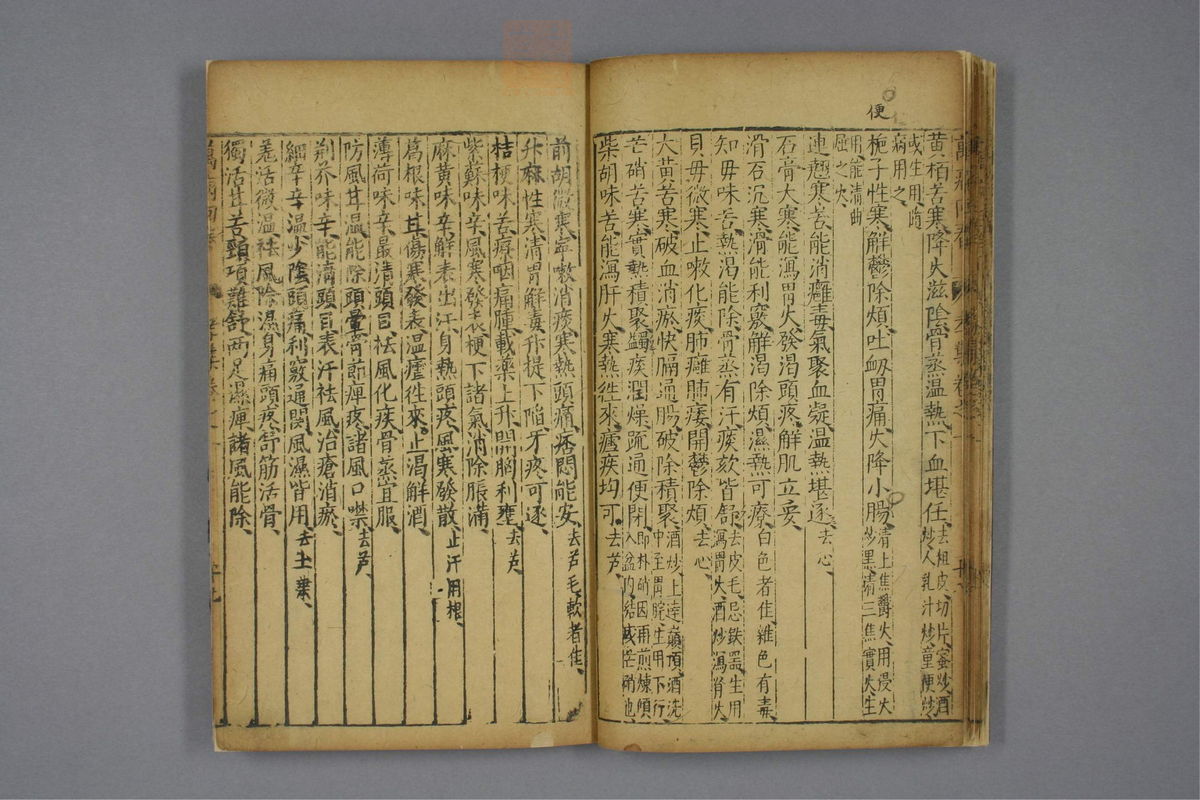 便
黄栢苦寒降火滋陰骨蒸温熱下血堪任去粗皮切片蜜炒酒炒人乳汁炒童便炒
或生用隨病用之
梔子性寒解鬱除煩吐衂胃痛火降小腸清上焦鬱火用慢火炒黑清三焦實火生
用能清曲屈之火
連翹寒苦能消癰毒氣聚血凝温熱堪逐去心
石膏大寒能瀉胃火發渴頭疼解肌立妥
滑石沉寒滑能利竅解渴除煩濕熱可療白色者佳雜色有毒
知毋味苦熱渴能除骨蒸有汗痰欬皆舒去皮毛忌鉄噐生用瀉胃火酒炒瀉腎火
貝毋微寒止嗽化痰肺癰肺痿開鬱除煩去心
大黄苦寒破血消瘀快膈通腸破除積聚酒炒上達巔頂酒洗中至胃脘生用下行
芒硝苦寒實熱積聚蠲痰潤燥疏通便閉即朴硝因再煎煉傾入盆内結成芒硝也
柴胡味苦能瀉肝火寒熱徃來瘧疾均可去芦
前胡微寒寧嗽消痰寒熱頭痛痞悶能安去芦毛軟者佳
升麻性寒清胃解毒升提下陷牙疼可逐
桔梗味苦療咽痛腫載藥上升開胸利壅去芦
紫蘇味辛風寒發表梗下諸氣消除脹滿
麻黄味辛解表出汗身熱頭疼風寒發散止汗用根
葛根味甘傷寒發表温瘧徃來止渴解酒
薄荷味辛最清頭目祛風化痰骨蒸宜服
防風甘温能除頭暈骨節痺疼諸風口噤去芦
荆芥味辛能清頭目表汗祛風治瘡消瘀
細辛辛温少陰頭痛利竅通関風濕皆用去土葉
羌活微温祛風除濕身痛頭疼舒筋活骨
獨活甘苦頸項難舒两足濕痺諸風能除